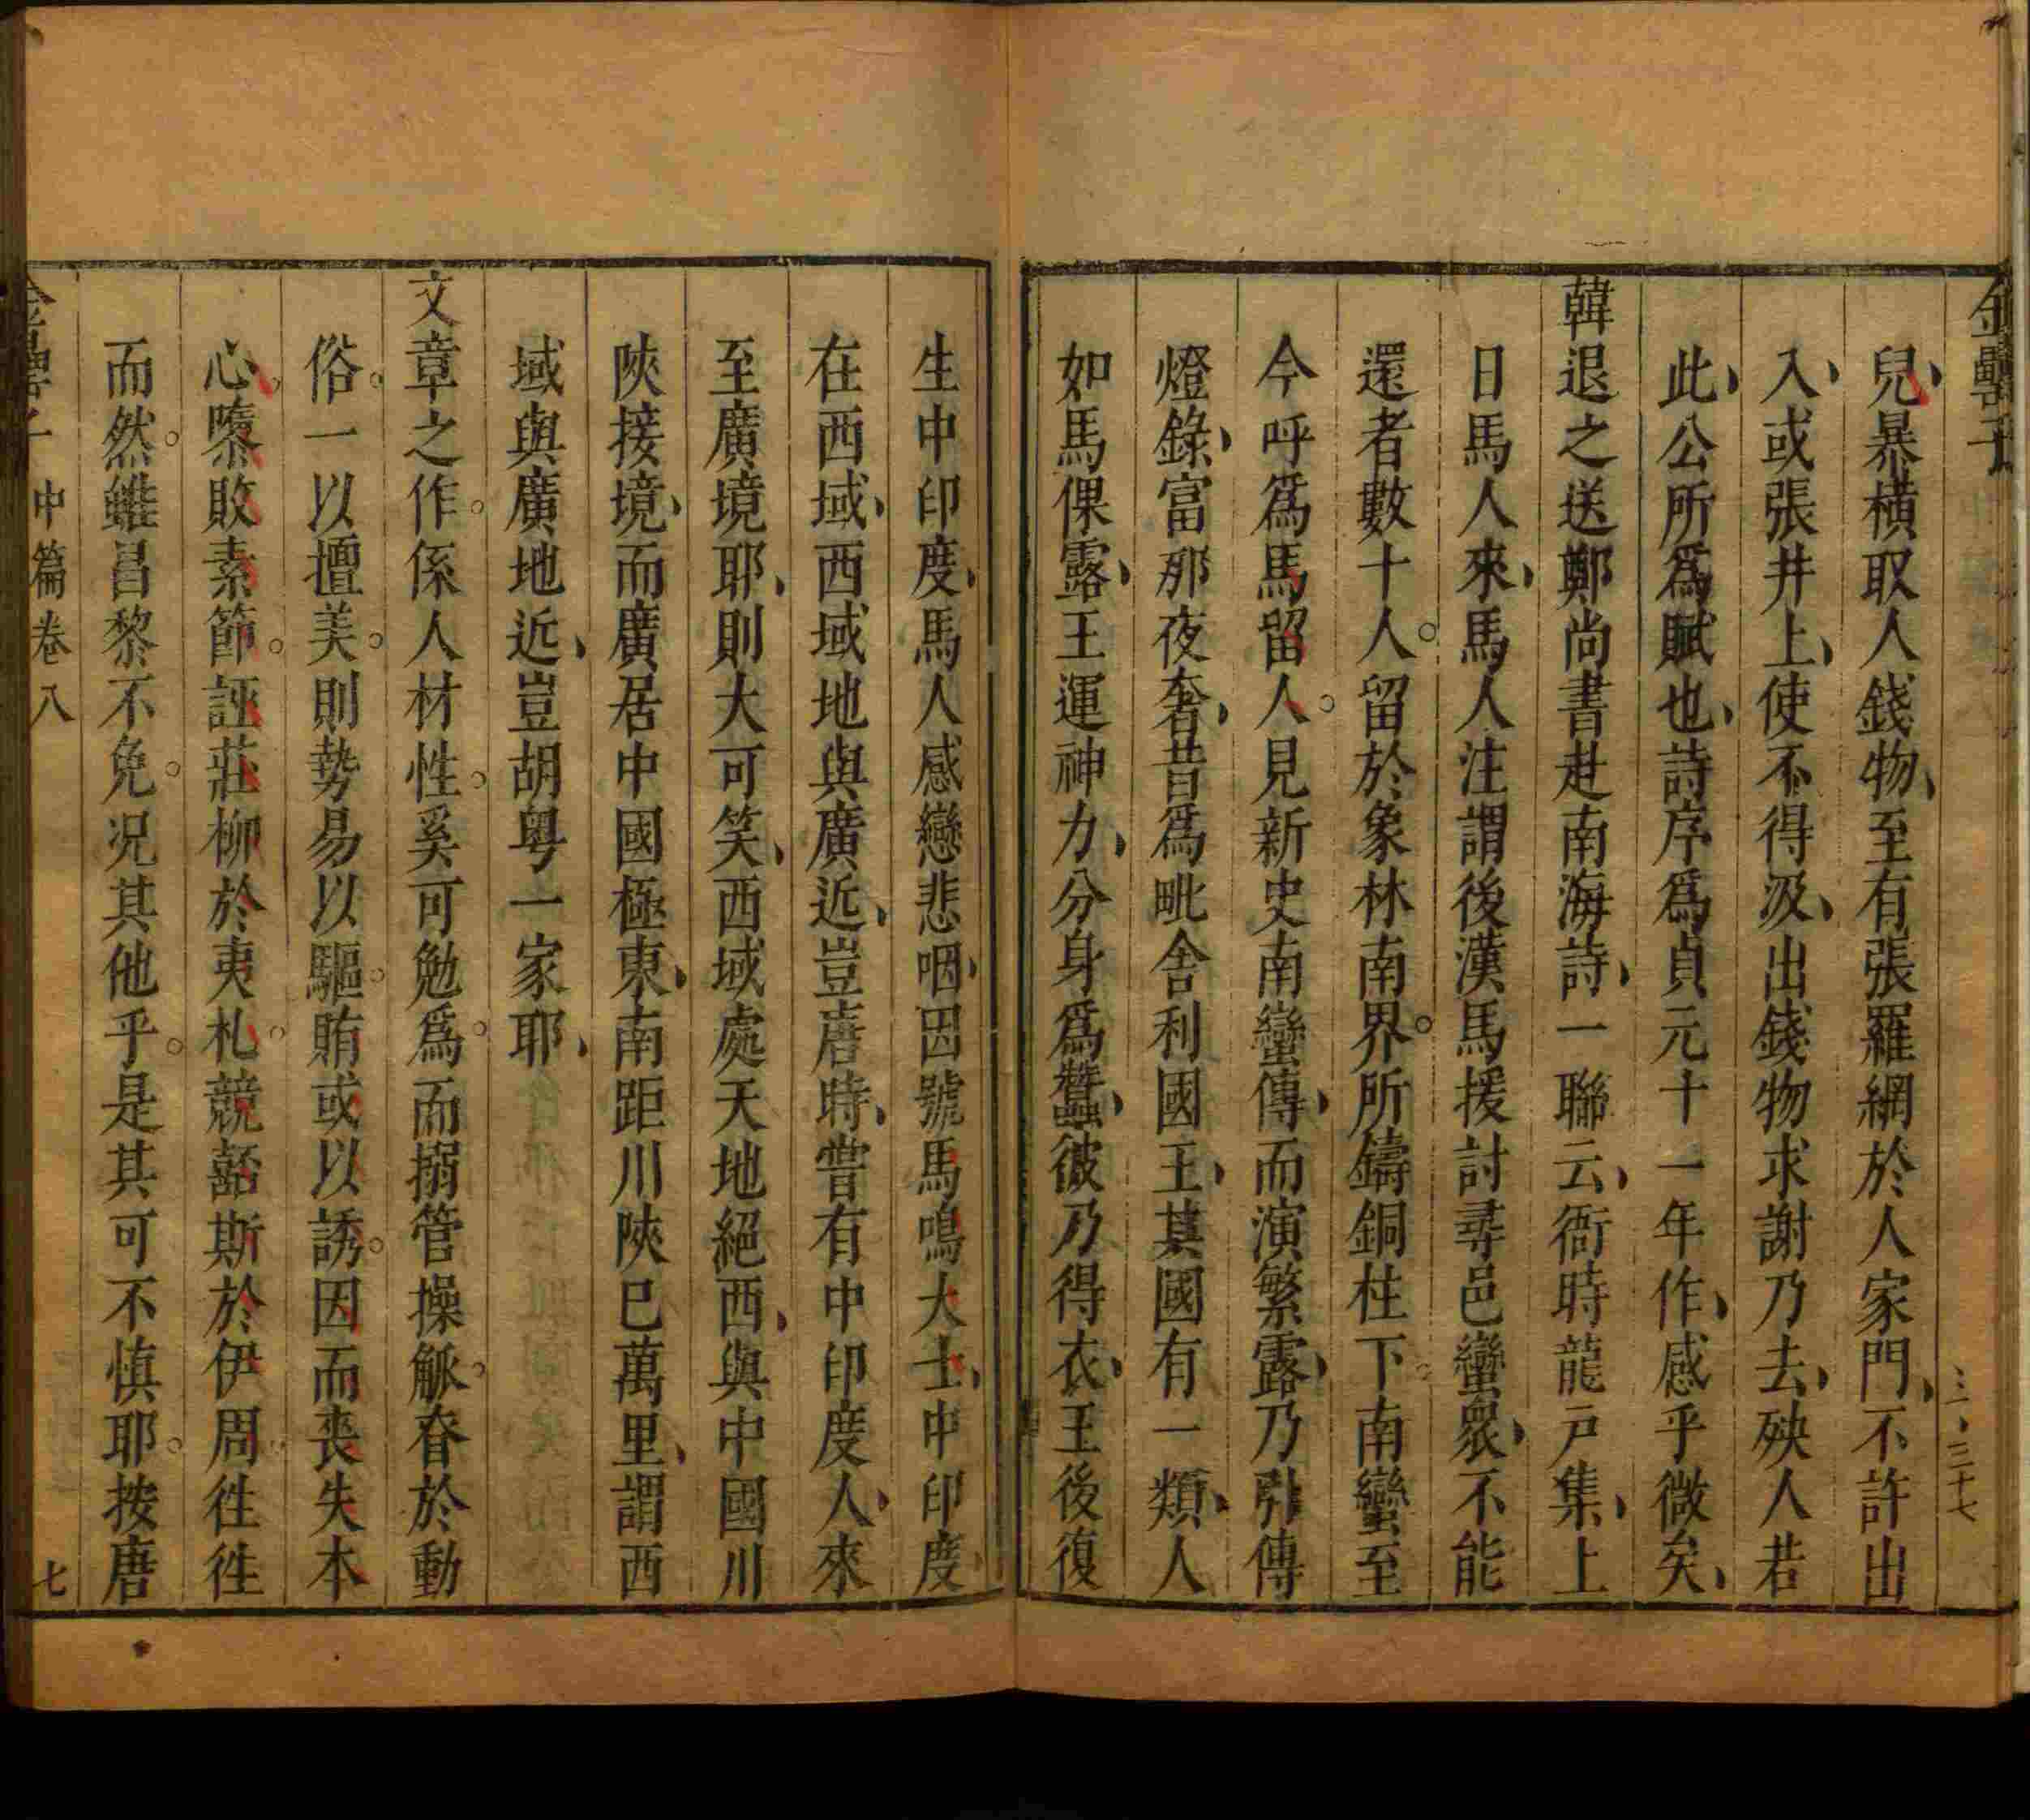 金罍子
三、三十七
兒暴橫取人錢物至有張羅網於人家門不許出
入或張井上使不得汲出錢物求謝乃去殃人若
此公所爲賦也詩序爲貞元十一年作感乎微矣
韓退之送鄭尚書赴南海詩一聯云衙時龍戸集上
日馬人來馬人注謂後漢馬援討尋邑蠻衆不能
還者數十人留於象林南界所鑄銅柱下南蠻至
今呼爲馬留人見新史南蠻傳而演繁露乃引傳
燈錄富那夜奢昔爲毗舍利國王其國有一類人
如馬倮露王運神力分身爲蠶彼乃得衣王後復
生中印度馬人感戀悲咽因號馬鳴大士中印度
在西域西域地與廣近豈唐時嘗有中印度人來
至廣境耶則大可笑西域處天地絕西與中國川
陝接境而廣居中國極東南距川陝巳萬里謂西
域與廣地近豈胡粤一家耶
文章之作係人材性奚可勉爲而搦管操觚眘於動
俗一以擅美則勢易以驅賄或以誘因而喪失本
心隳敗素節誣莊柳於夷札競嚭斯於伊周徃徃
而然雖昌黎不免况其他乎是其可不慎耶按唐
金罍子 中篇卷八 七